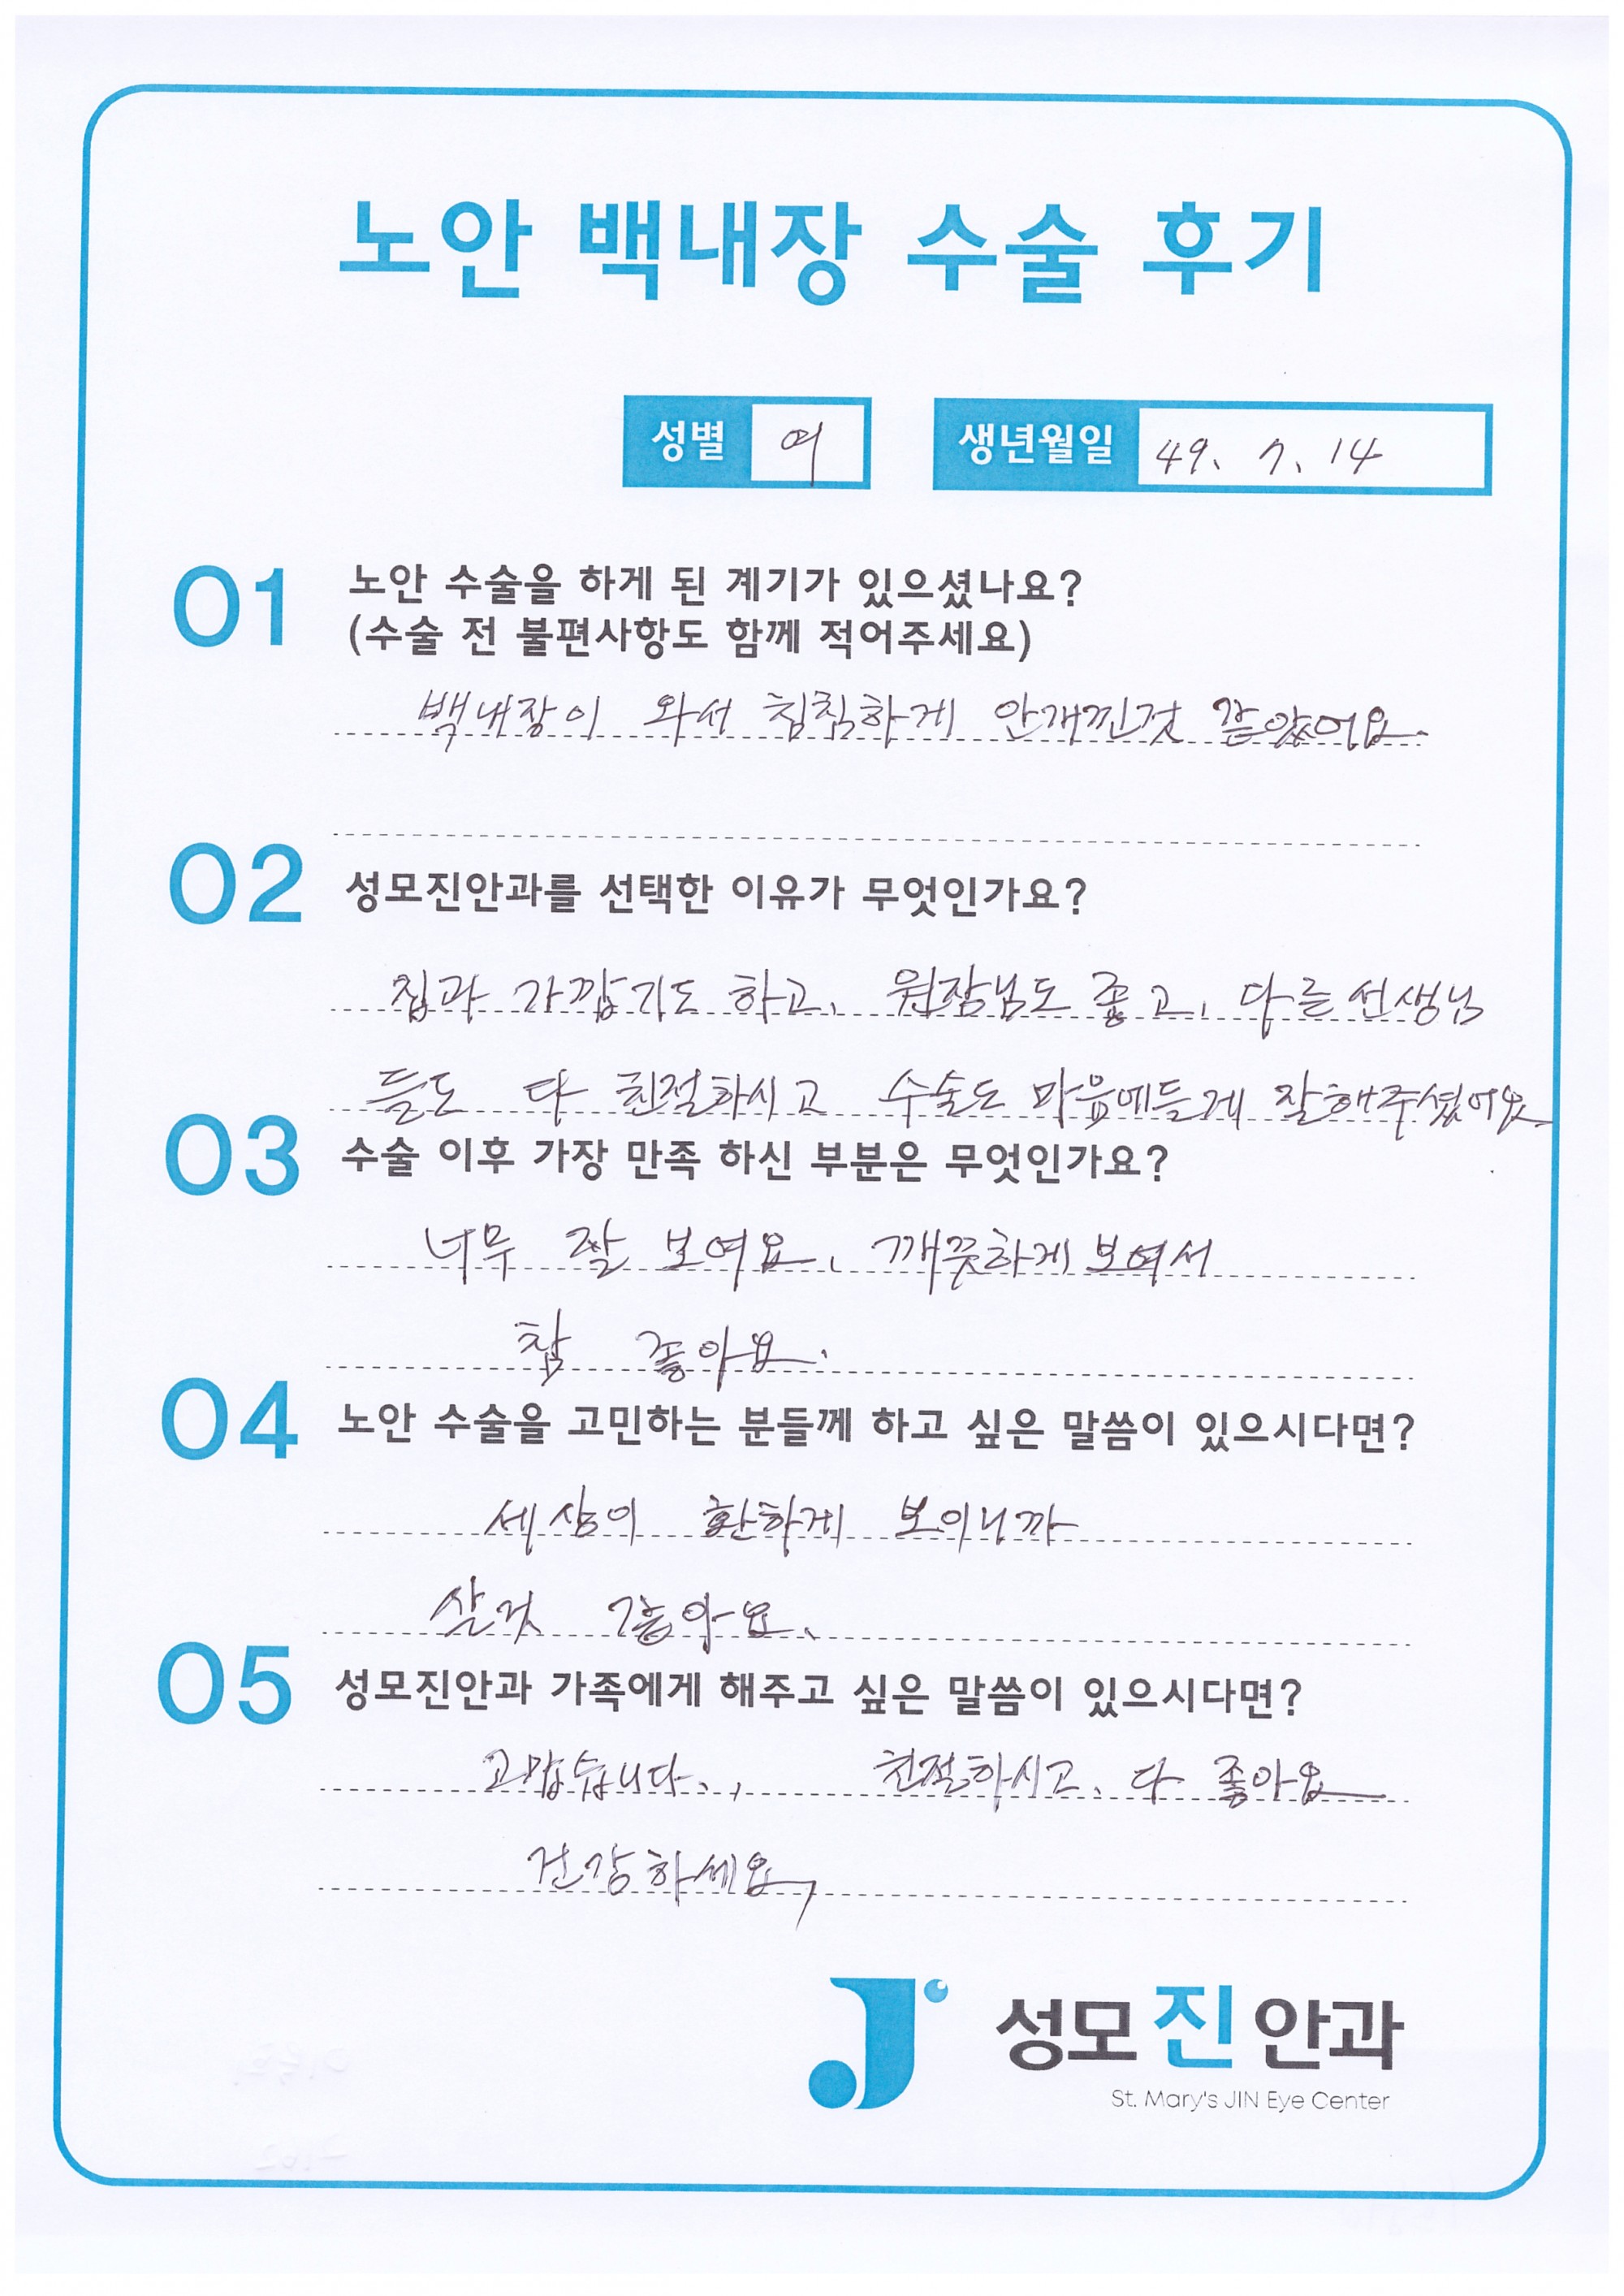 노안 백내장 수술 후기
성별 여 생년월일 49. 7. 14
01 노안 수술을 하게 된 계기가 있으셨나요?
(수술 전 불편사항도 함께 적어주세요)
백내장이 와서 침침하게 안개낀것 같았어요.
02 성모진안과를 선택한 이유가 무엇인가요?
집과 가깝기도 하고, 원장님도 좋고, 다른선생님
들도 다 친절하시고 수술도 마음에들게 잘해주셨어요
03 수술 이후 가장 만족 하신 부분은 무엇인가요?
너무 잘 보여요, 깨끗하게 보여서
참 좋아요.
04 노안 수술을 고민하는 분들께 하고 싶은 말씀이 있으시다면?
세상이 환하게 보이니까
살것 같아요.
05 성모진안과 가족에게 해주고 싶은 말씀이 있으시다면?
고맙습니다.., 친절하시고, 다 좋아요
건강하세요,
성모진안과
St. Mary's JIN Eye Center